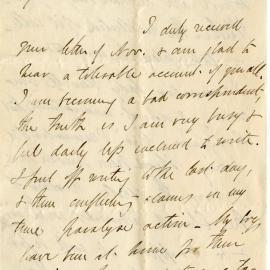 I duly received
your letter of Nov. & am glad to
hear a tolerable account of you all.
I am becoming a bad correspondent,
the truth is I am very busy &
feel daily less inclined to write.
& put off writing to the last day,
& then conflicting claims on my
time paralyse action – My boys
have been at home for their